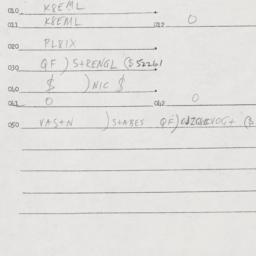 010 K8EML
011 K8EML 012 0
020 PL81X
030 QF) S+RENGL ($ 52261
040 $ )NIC $
041 0 042 0
050 VAS+N )S+ABES QF) ($